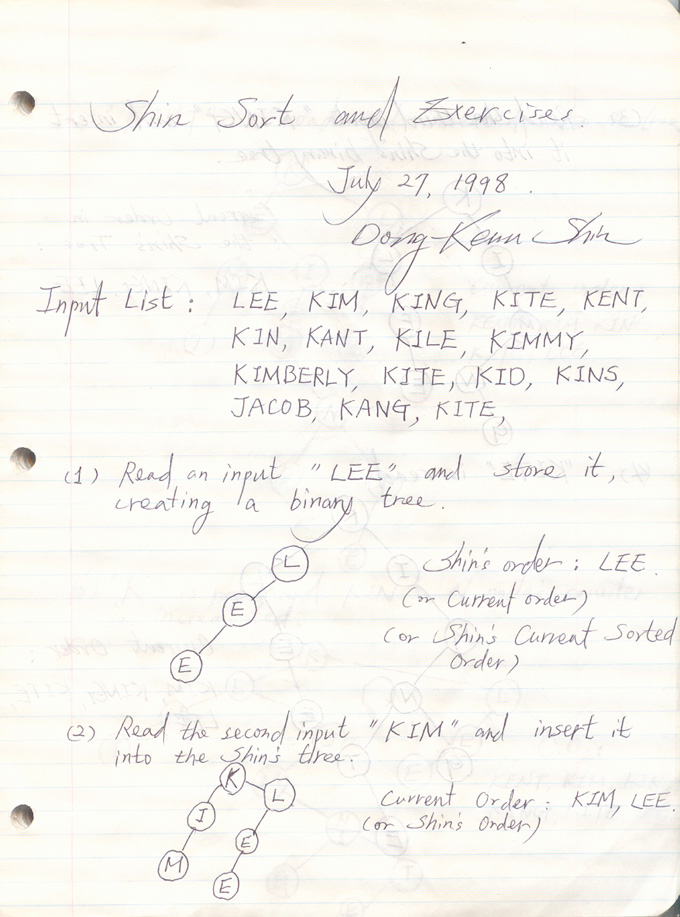 Shin Sort and Exercises.
July 27, 1998.
Dong-Keun Shin
Input List : LEE, KIM, KING, KITE, KENT,
KIN, KANT, KILE, KIMMY,
KIMBERLY, KITE, KID, KINS,
JACOB, KANG, KITE,
(1) Read an input "LEE" and store it,
creating a binary tree.
L
E
E
Shin's order : LEE.
(or Current order)
(or Shin's Current Sorted
Order)
(2) Read the second input "KIM" and insert it
into the Shin's tree.
K
L
I
E
M
E
Current Order : KIM, LEE.
(or Shin's Order)